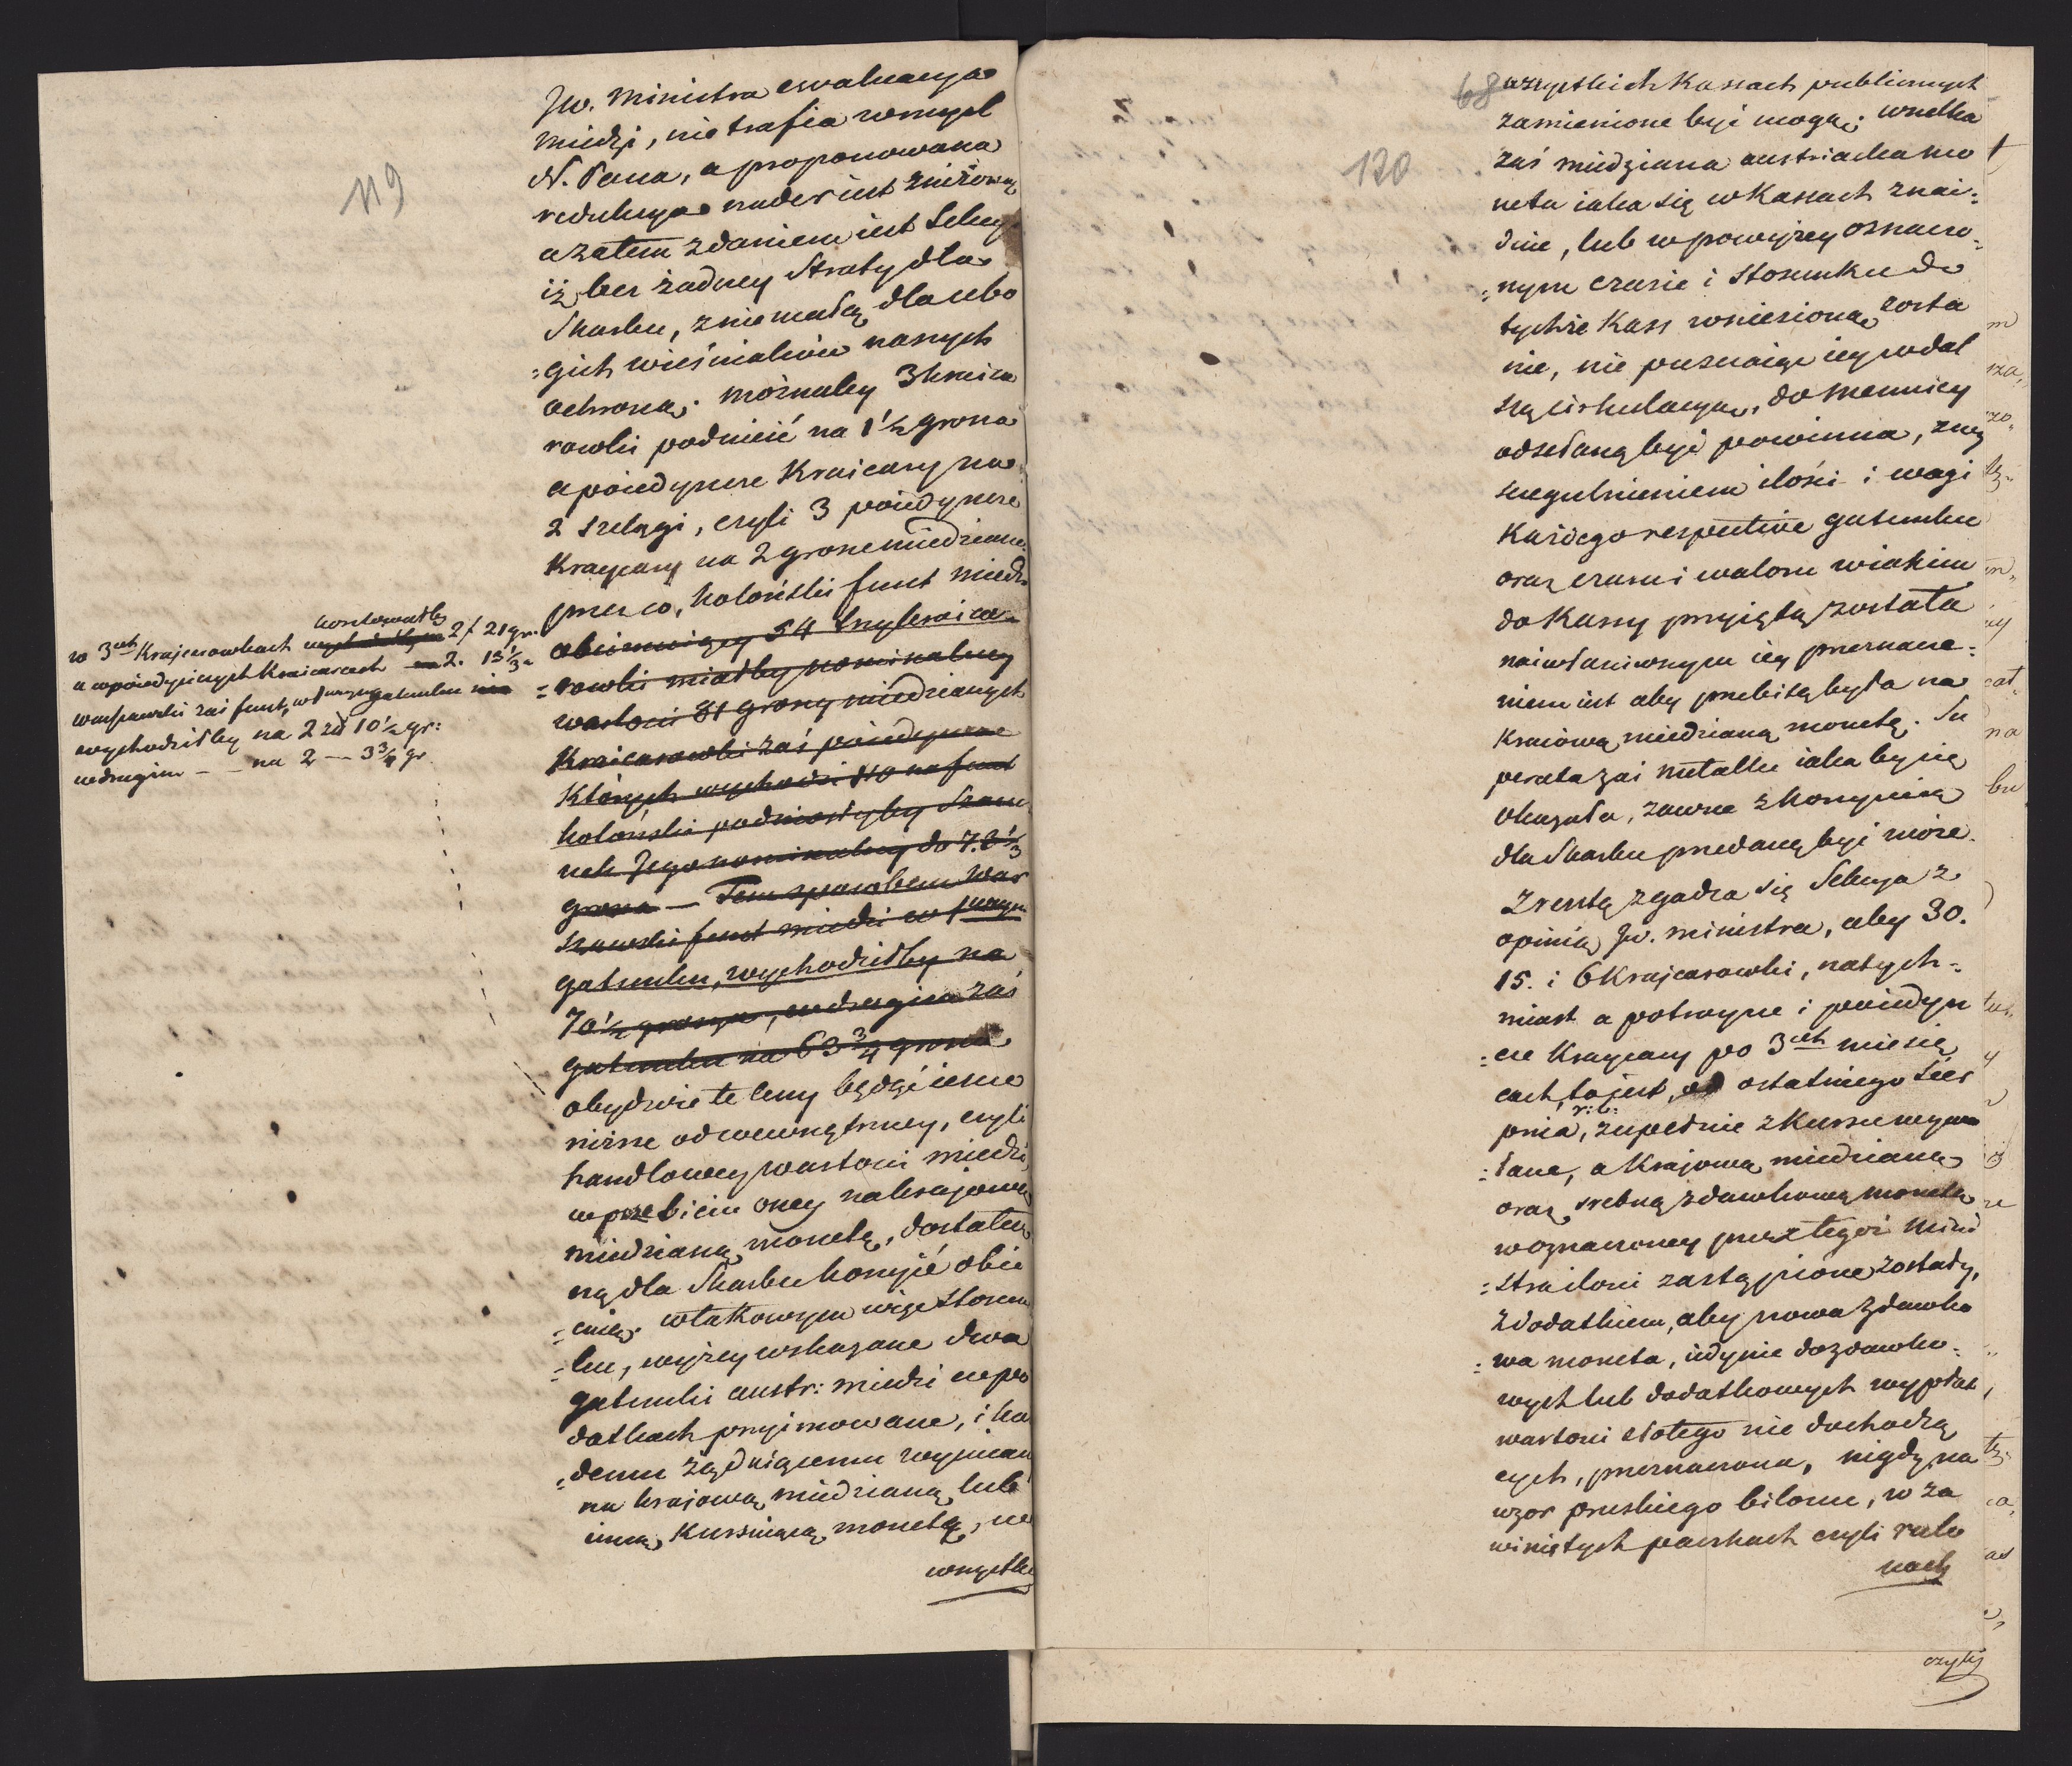 119
JW. Ministra ewaluacya
miedzi, nie trafia w myśl
N. Pana, a proponowana
redukcya nader iest zniżoną
a zatem zdaniem iest Sekcyi
iż bez żadney straty dla
Skarbu, z niemałą dla ubo
=gich wieśniaków naszych
ochroną; możnaby 3 kraica
rowki podnieść na 1½ grosza
a poiedyncze Kraicary na
2 szelągi, czyli 3 poiedyncze
Kraycary na 2 grosze miedziane.
przez co, koloński funt miedzi
obeimuiący 54 trzykraica-
=rowki miałby nominalney
wartości 81 groszy miedzianych
Kraicarowki zaś poiedyncze
których wychodzi 110 na funt
koloński podniosłyby szacu
nek Jego nominalny do 73⅓
grosza — Tem sposobem War
szawski funt miedzi w 1wszym
gatunku, wychodziłby na
70½ groszy, w drugim zaś
gatunku na 63¾ grosza
obydwie te ceny będąc ieszcze
niższe od wewnętrzney, czyli
handlowey wartości miedzi
w przebiciu oney na krajową
miedzianą monetę, dostatecz
ną dla Skarbu korzyść obie
=cuią. W takowym więc stosun
=ku, wyżey wskazane dwa
gatunki austr: miedzi w po
datkach przyimowane, i ka
=demu żądaiącemu wymian
na krajową miedzianą lub
inną kursuiącą monetę, we
wszystkich
kosztowałby
w 3ech Krajcarowkach 2 f 21 gr.
a w poiedyńczych Kraicarach 2. 13⅓.
warszawski zaś funt, w 1wszym gatunku
wychodziłby na 2 zł 10½ gr:
w drugim — — na 2 — 3¾ gr
68
120
wszystkich Kassach publicznych
zamienione być mogą; wszelka
zaś miedziana austriacka mo
neta iaka się w Kassach znai=
dzie, lub w powyższey oznaczo=
=nym czasie i stosunku do
tychże Kass wniesioną zosta
nie, nie puszczaiąc iey w dal
szą cirkulacyą, do Mennicy
odsełaną być powinna, z wy
szczegulnieniem ilości i wagi
każdego respective gatunku
oraz czasu i waloru w iakim
do Kassy przyiętą została
naiwłaściwszym iey przeznacze=
niem iest aby przebitą była na
Kraiową miedzianą monetę. Su
perata zaś metallu iaka by się
okazała, zawsze z korzyścią
dla Skarbu przedaną być może.
Zresztą zgadza się Sekcya z
opinią JW. Ministra, aby 30.
15. i 6 Krajcarowki, natych=
miast a potroyne i poiedyn
=cze Kraycary po 3ech miesią
cach, to jest, od ostatniego sier
pnia r: b:, zupełnie z Kursu wywo
=łane, a Krajową miedzianą
oraz srebną zdawkową monetą
w oznaczoney przez tegoż Mini
=stra ilości zastąpione zostały,
z dodatkiem, aby nowa zdawko
=wa moneta, iedynie do zdawko=
wych lub dodatkowych wypłat
wartości złotego nie dochodzą
cych, przeznaczona, nigdy na
wzor pruskiego bilonu, w za
winiętych paczkach czyli rulo
nach
czyli